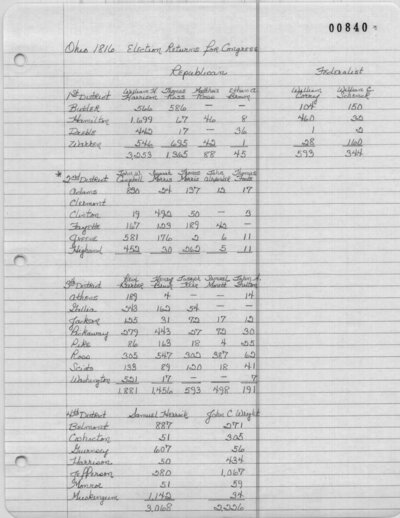 00840
Ohio 1816 Election Returns for Congress
Republican Federalist
1st District William H. Harrison Thomas Ross Ethan A. Brown William
Butler 566 586 — — 104 150
Hamilton 1,699 67 46 8 460 30
Preble 442 17 — 36 1 2
Warren 546 695 42 1 28 160
3,253 1,365 88 45 593 344
* 2nd District John W. Campbell Joseph Morris Thomas Morris John
Adams 830 24 137 12 17
Clermont
Clinton 19 492 50 — 3
Fayette 167 123 189 42 —
Greene 581 176 2 6 11
Highland 452 30 262 5 11
3rd District Levi Barber Henry Brush Samuel Monett John A. Fulton
Athens 189 4 — — 14
Gallia 243 162 54 — —
Jackson 125 31 72 17 12
Pickaway 279 443 27 72 30
Pike 86 163 18 4 25
Ross 305 547 302 387 62
Scioto 133 89 120 18 41
Washington 521 17 — — 7
1,881 1,456 593 498 191
4th District Samuel Herrick John C. Wright
Belmont 887 271
Coshocton 51 305
Guernsey 607 56
Harrison 50 434
Jefferson 280 1,067
Monroe 51 59
Muskingum 1,142 34
3,068 2,226